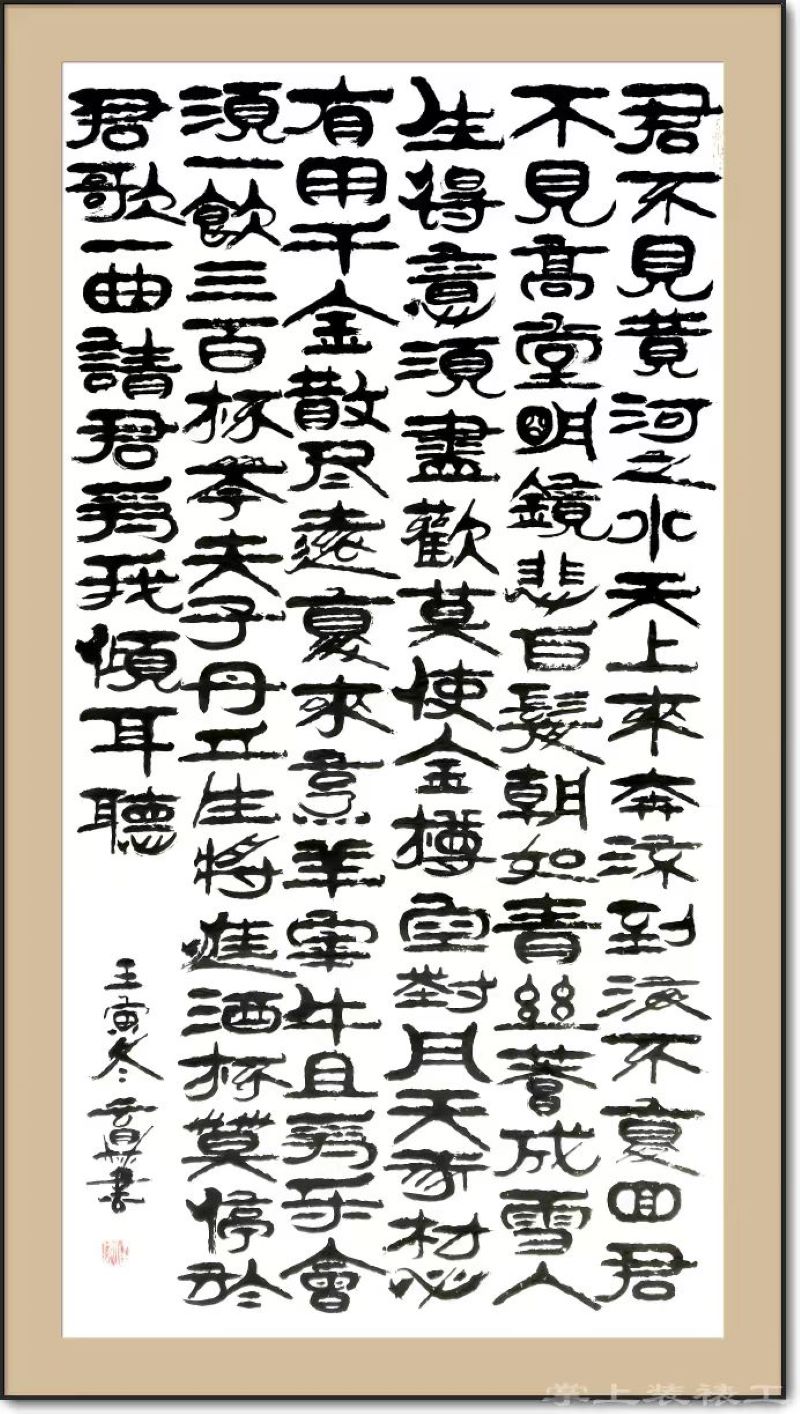 君不見黄河之水天上來奔流到海不复回君
不見高堂明鏡悲白髮朝如青絲暮成雪人
生得意須盡歡莫使金樽空對月天我材必
有用千金散尽還复來烹羊宰牛且爲乐會
須一飲三百杯岑夫子丹丘生將進酒杯莫停
君歌一曲請君爲我傾耳聽
壬寅冬書
掌上装裱工